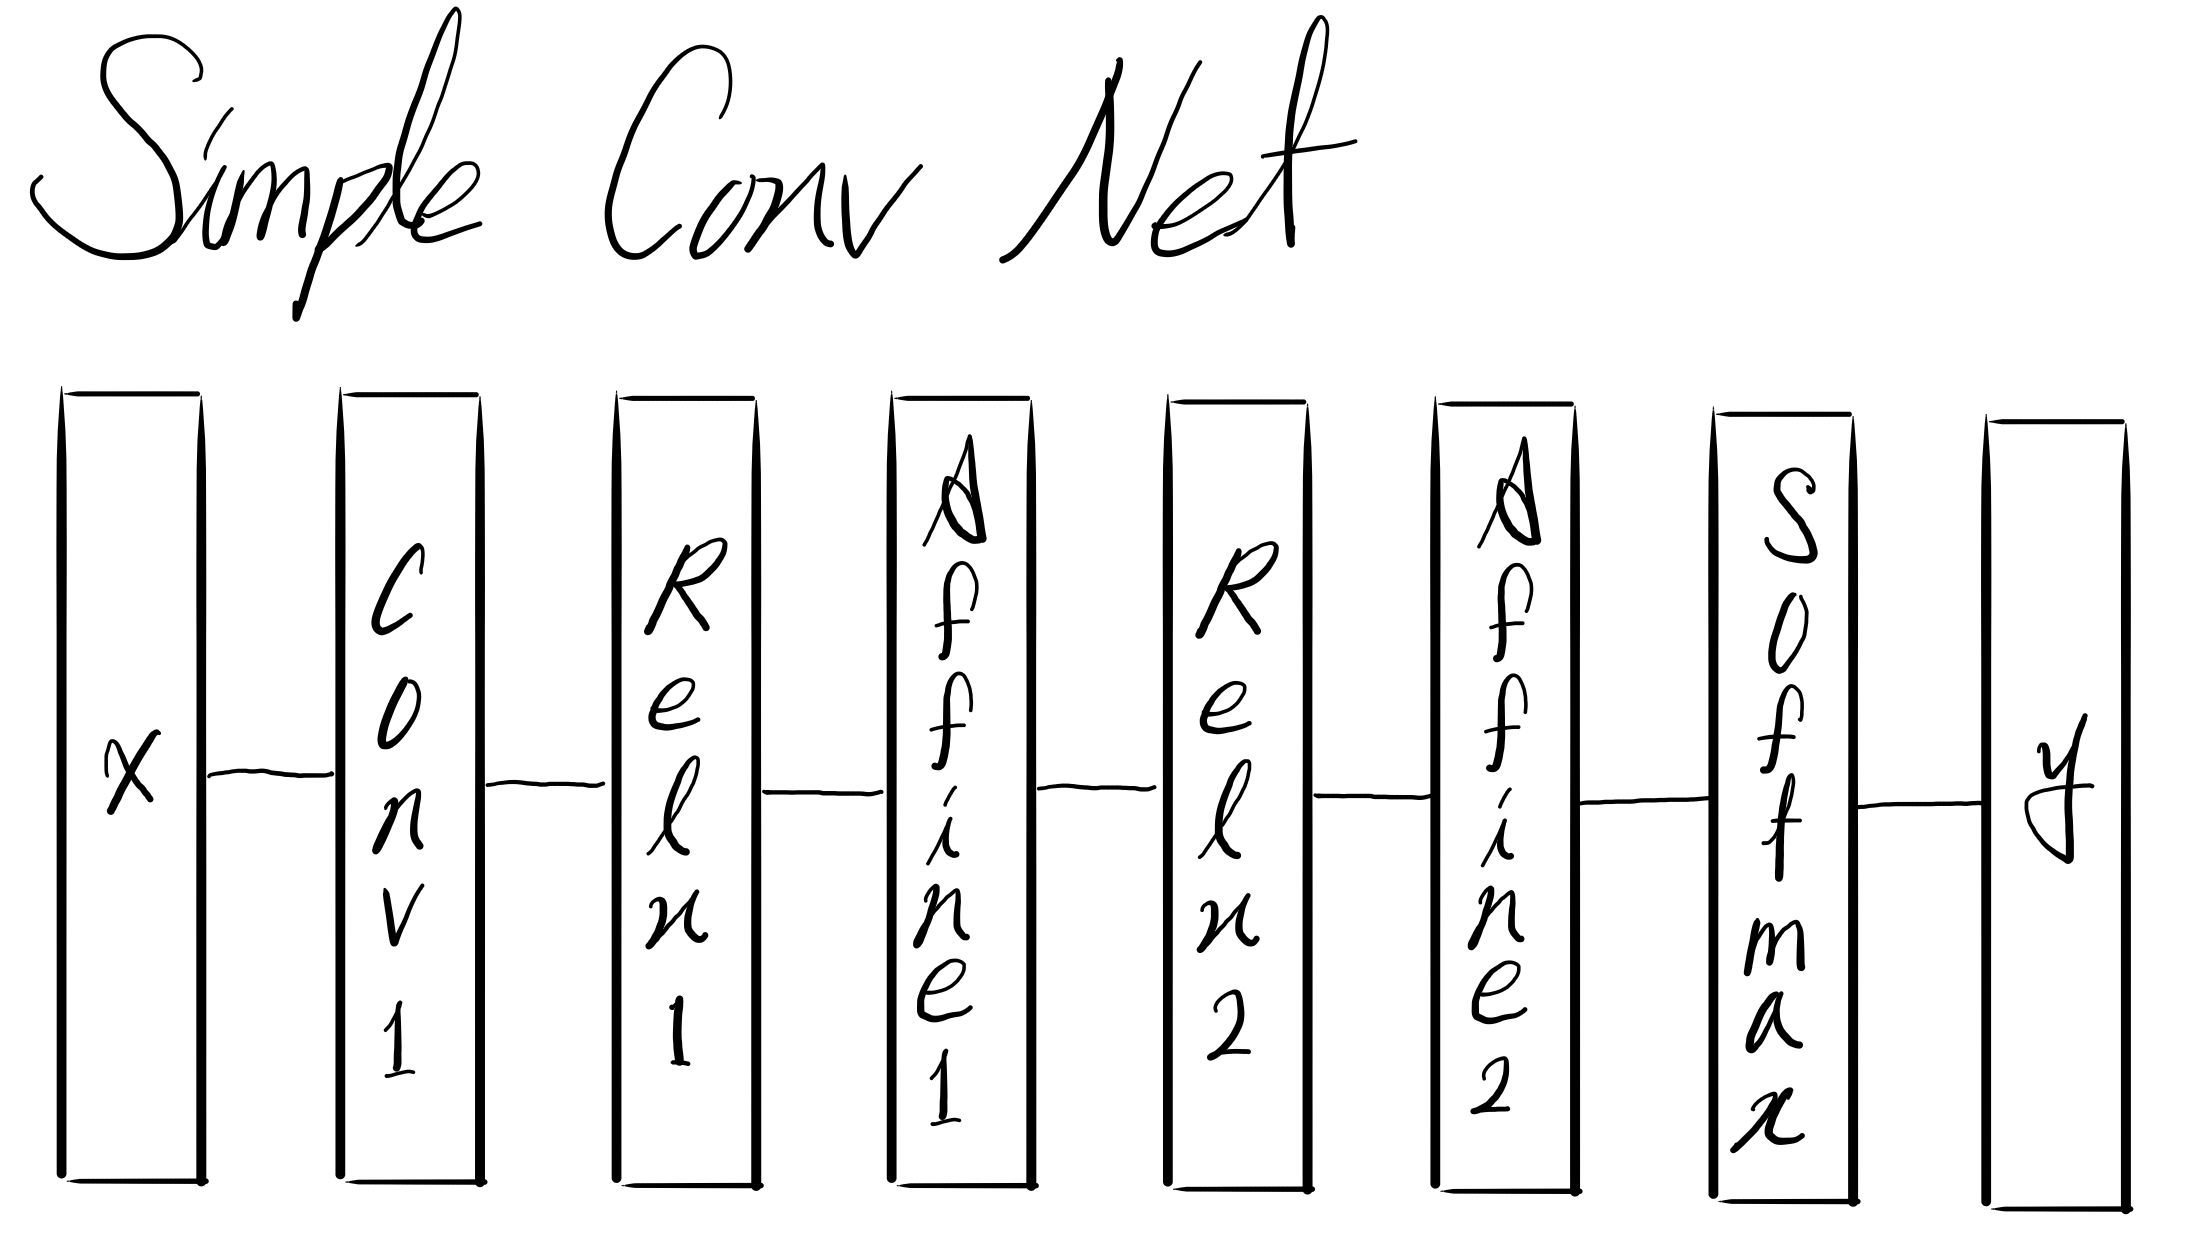 Simple Conv Net
x
Conv1
Relu1
Affine1
Relu2
Affine2
Softmax
y